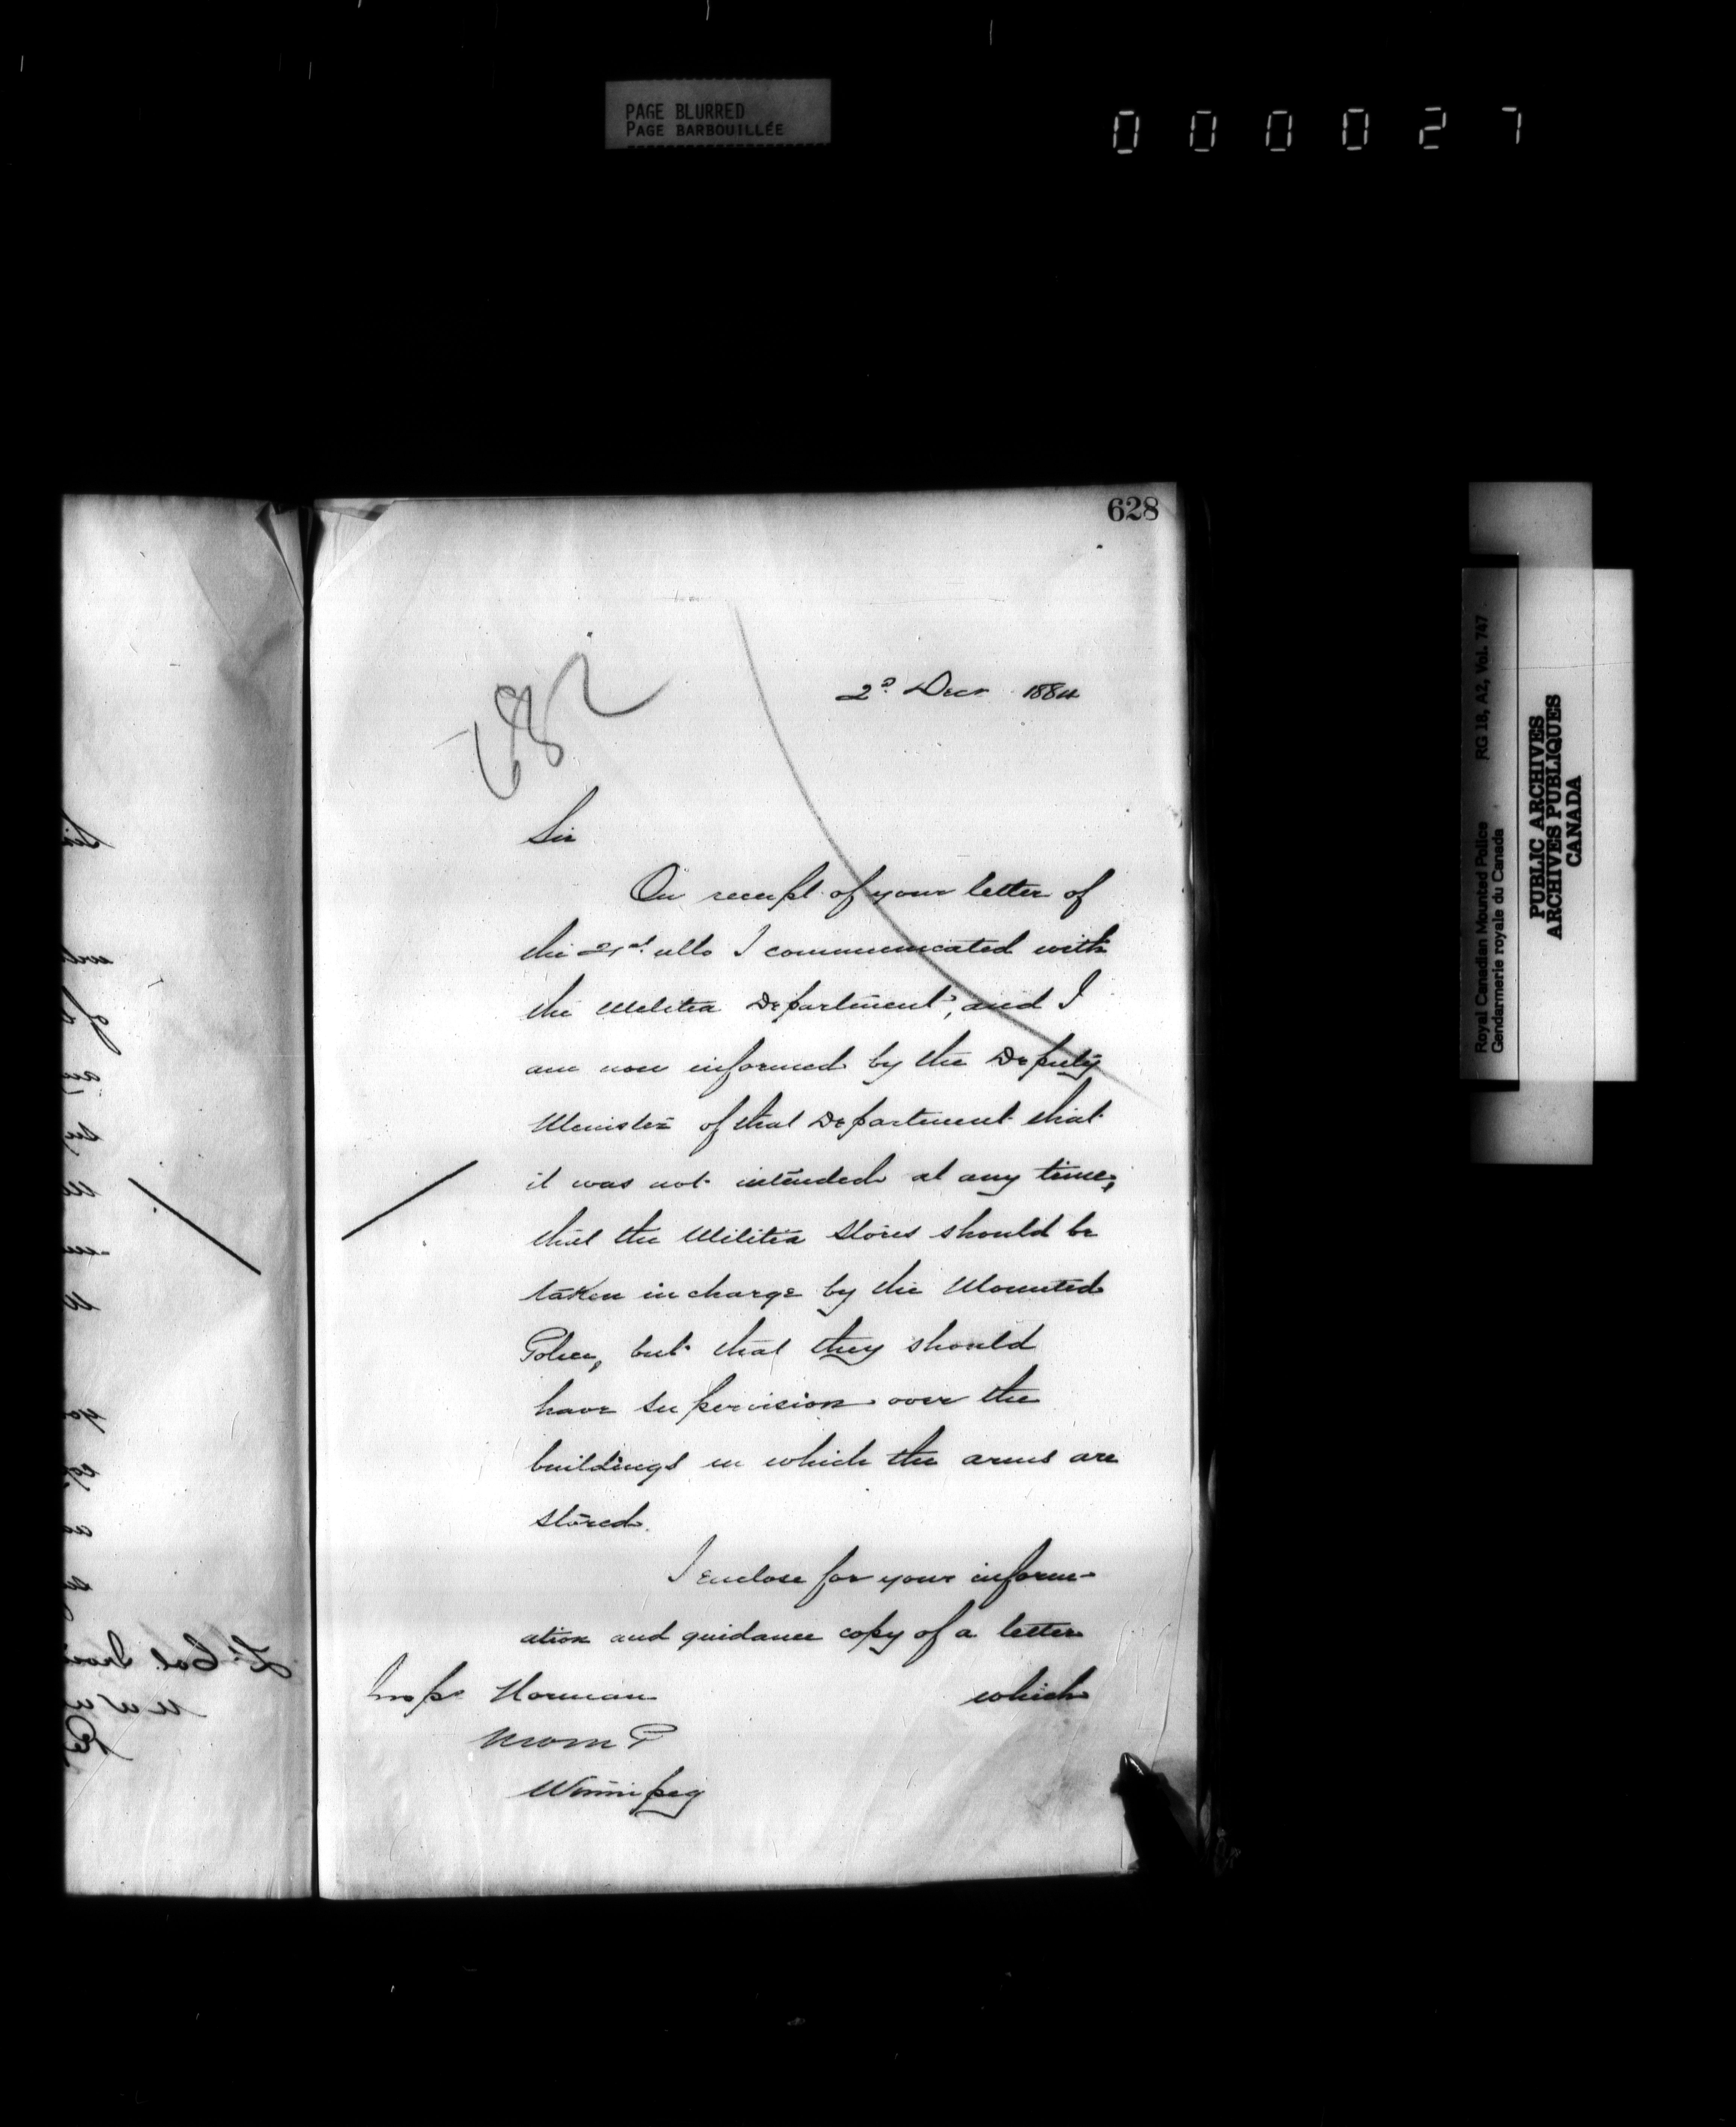 PAGE BLURRED
PAGE BARBOUILLÉE
0 0 0 0 2 7
628
682
2d Decr 1884
Sir
On receipt of your letter of
the ulto I communicated with
the Militia Department, and I
am now informed by the Deputy
Minister of that Department that
it was not intended at any time,
that the Militia Stores should be
taken in charge by the Mounted
Police, but that they should
have supervision over the
buildings in which the arms are
stored.
I enclose for your inform-
ation and guidance copy of a letter
which
Insp. Norman
NWMP
Winnipeg
Royal Canadian Mounted Police RG 18, A2, Vol. 747
Gendarmerie royale du Canada
PUBLIC ARCHIVES
ARCHIVES PUBLIQUES
CANADA